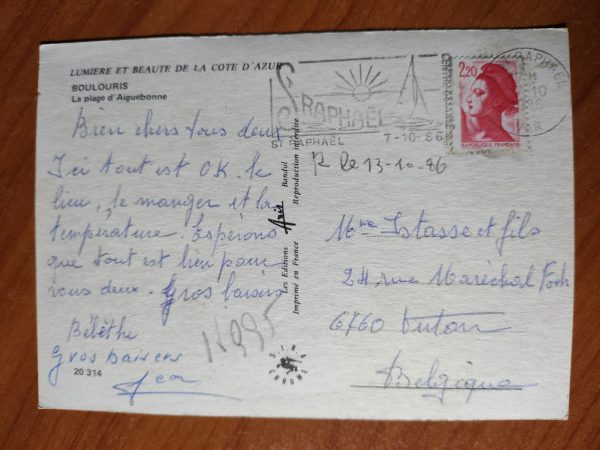 LUMIERE ET BEAUTE DE LA COTE D'AZUR
BOULOURIS
La plage d'Aiguebonne
Bien chers tous deux
Ici tout est OK. le
lieu, le manger et la
température. Espérons
que tout est bien pour
vous deux. Gros baisers
Bébèthe
Gros baisers
Jean
20 314
Les Editions Aris Bandol
Imprimé en France Reproduction interdite
ST RAPHAËL
7-10-86
2,20
REPUBLIQUE FRANÇAISE
RAPHAEL
VAR
R le 13-10-86
Mme Istasse et fils
24, rue Maréchal Foch
6760 Virton
Belgique